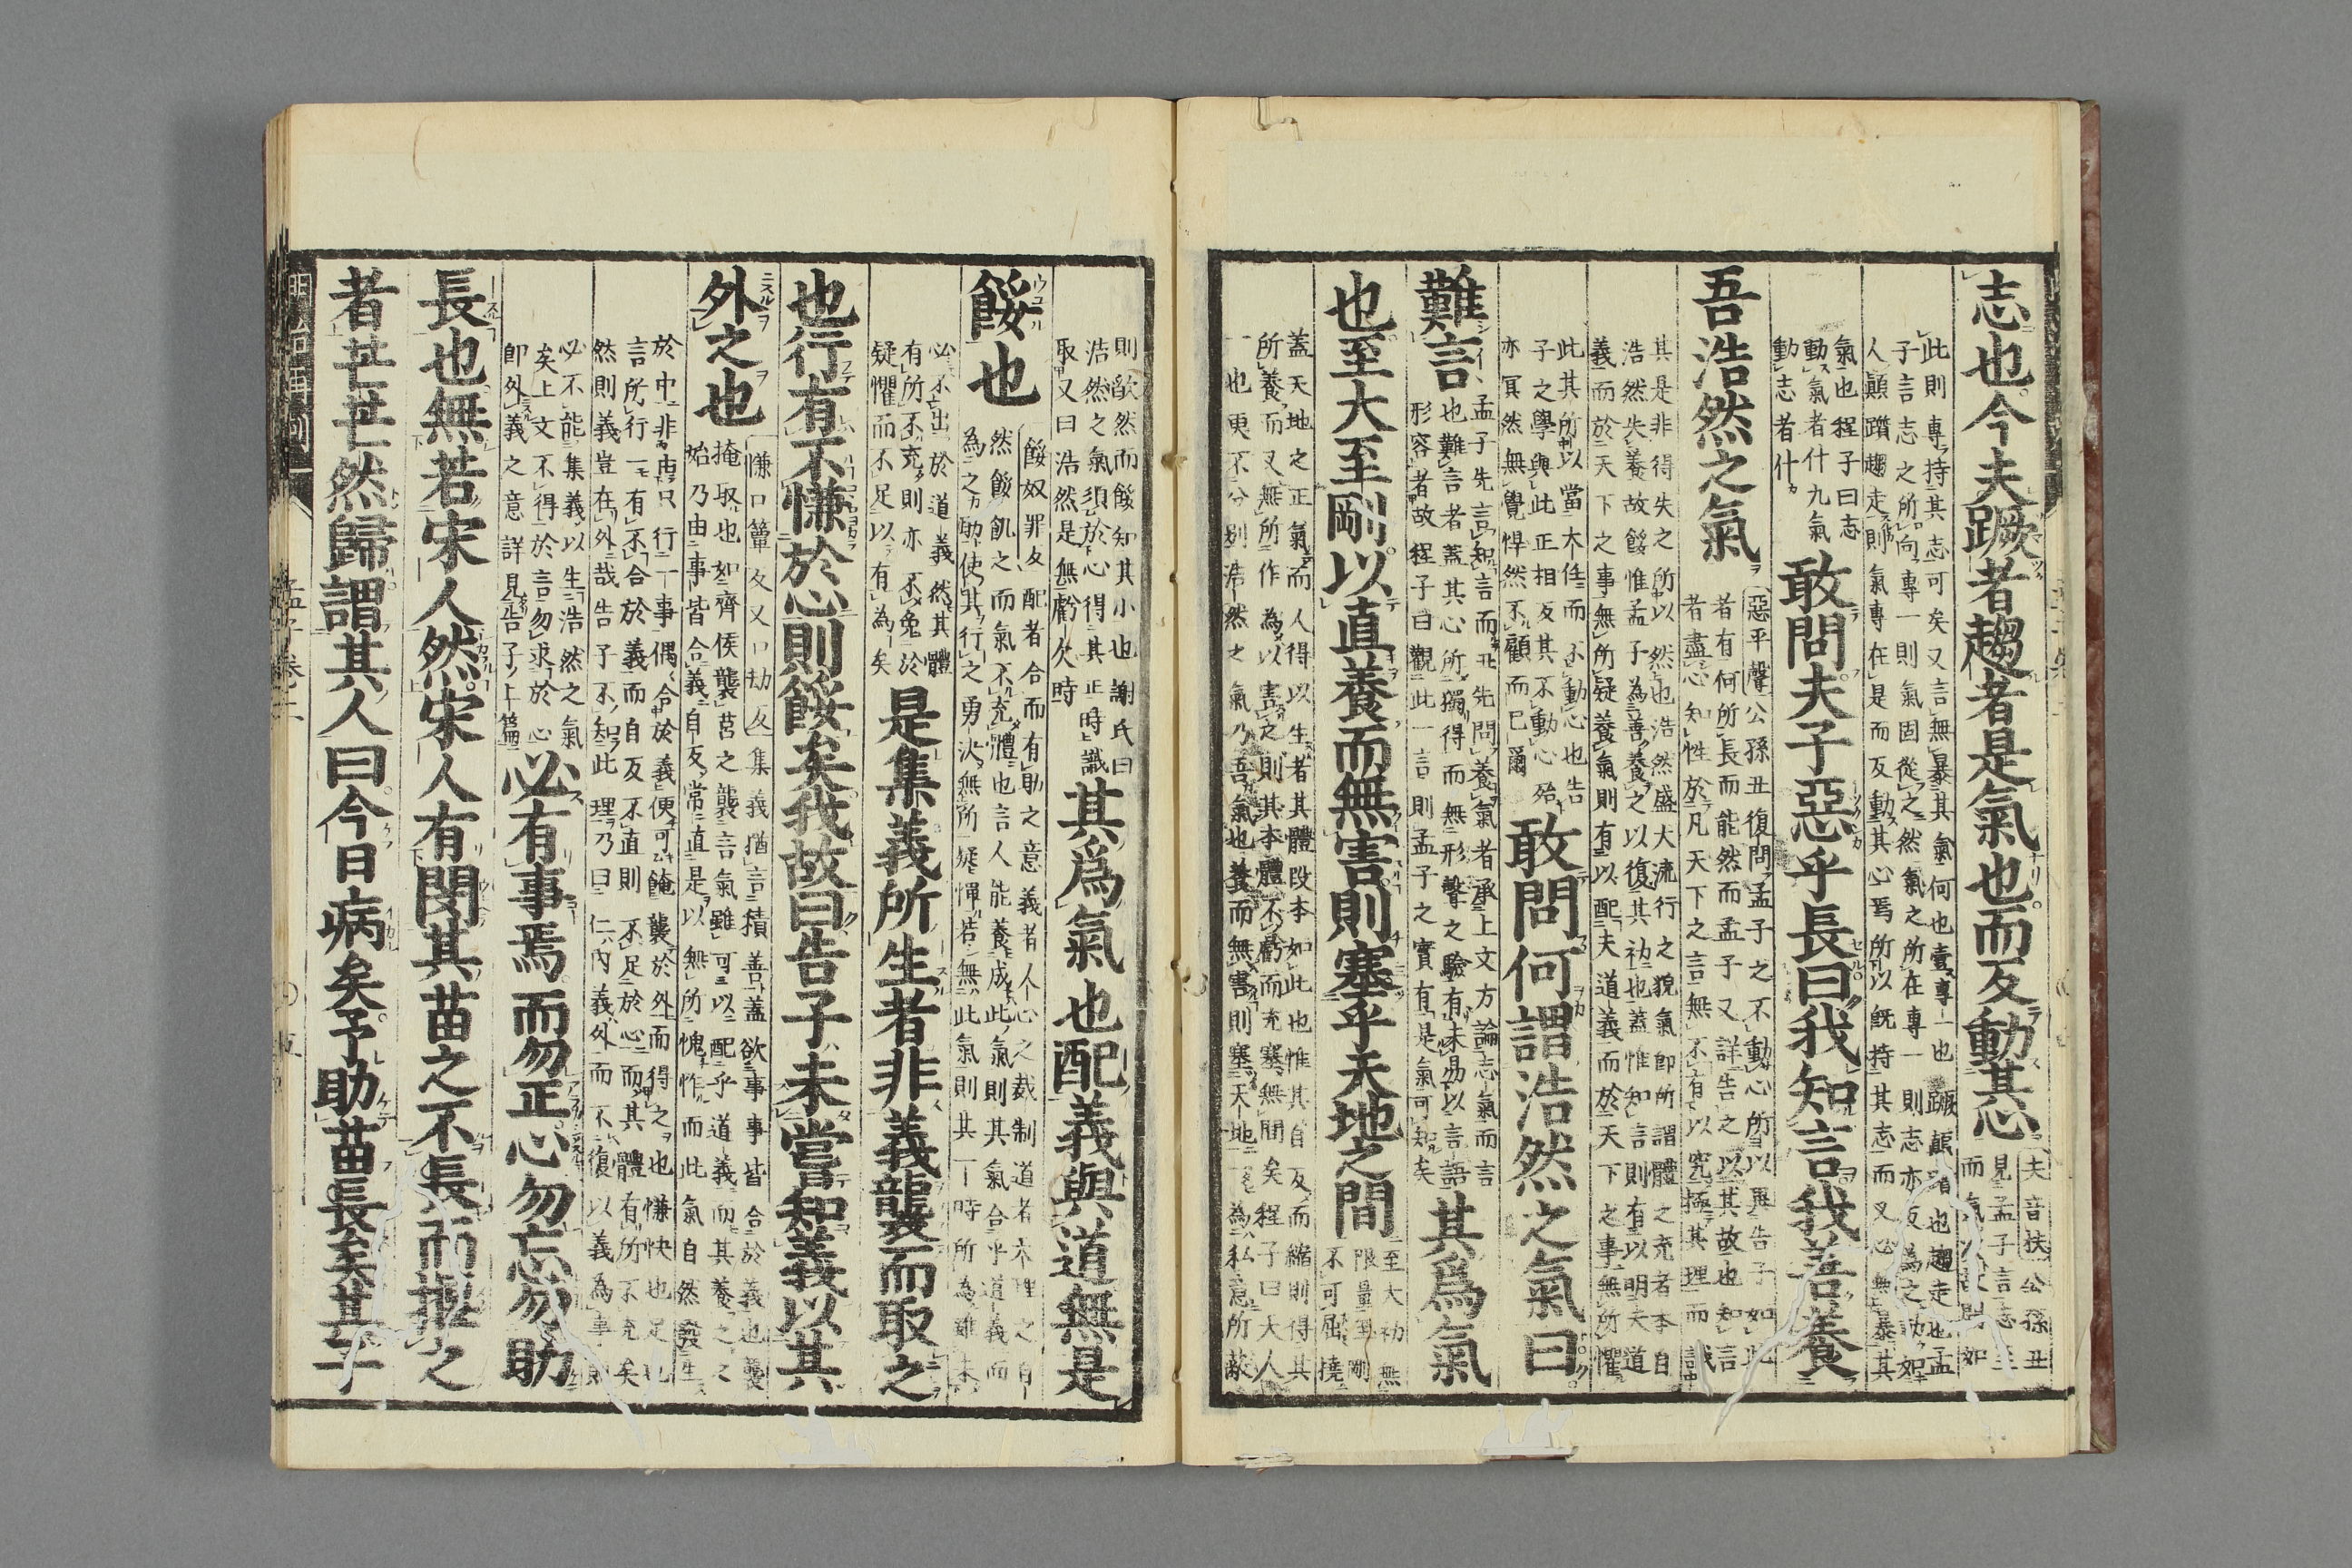 志也今夫蹶者趨者是氣也而反動其心
夫音扶公孫丑
見孟子言志至
而氣次故問如
此則專持其志可矣又言無暴其氣何也壹專一也蹶顛躓也趨走也孟
子言志之所向專一則氣固從之然氣之所在專一則志亦反為之動如
人顛躓趨走則氣專在是而反動其心焉所以既持其志而又必無暴其
氣也程子曰志
動氣者什九氣
動志者什一
敢問夫子惡乎長曰我知言我善養
吾浩然之氣
惡平聲公孫丑復問孟子之不動心所以異告子如此
者有何所長而能然而孟子又詳告之以其故也知言
者盡心知性於凡天下之言無不有以究極其理而識
其是非得失之所以然也浩然盛大流行之貌氣即所謂體之充者本自
浩然失養故餒惟孟子為善養之以復其初也蓋惟知言則有以明夫道
義而於天下之事無所疑養氣則有以配夫道義而於天下之事無所懼
此其所以當大任而不動心也告
子之學與此正相反其不動心殆
亦冥然無覺悍然不顧而已爾
敢問何謂浩然之氣曰
難言
孟子先言知言而丑先問養氣者承上文方論志氣而言
也難言者蓋其心所獨得而無形聲之驗有未易以言語
形容者故程子曰觀此一言則孟子之實有是氣可知矣
其爲氣
也至大至剛以直養而無害則塞乎天地之間
至大初無
限量至剛
不可屈撓
蓋天地之正氣而人得以生者其體段本如此也惟其自反而縮則得其
所養而又無所作為以害之則其本體不虧而充塞無間矣程子曰天人
一也更不分別浩然之氣乃吾氣也養而無害則塞天地一為私意所蔽
則欿然而餒知其小也謝氏曰
浩然之氣須於心得其正時識
取又曰浩然是無虧欠時
其爲氣也配義與道無是
餒也
餒奴罪反配者合而有助之意義者人心之裁制道者天理之自
然餒飢乏而氣不充體也言人能養成此氣則其氣合乎道義而
為之助使其行之勇決無所疑憚若無此氣則其一時所為雖未
必不出於道義然其體
有所不充則亦不免於
疑懼而不足以有為矣
是集義所生者非義襲而取之
也行有不慊於心則餒矣我故曰告子未嘗知義以其
外之也
慊口簟反又口劫反集義猶言積善蓋欲事事皆合於義也襲
掩取也如齊侯襲莒之襲言氣雖可以配乎道義而其養之之
始乃由事皆合義自反常直是以無所愧怍而此氣自然發生
於中非由只行一事偶合於義便可掩襲於外而得之也慊快也足也
言所行一有不合於義而自反不直則不足於心而其體有所不充矣
然則義豈在外哉告子不知此理乃曰仁內義外而不復以義為事則
必不能集義以生浩然之氣
矣上文不得於言勿求於心
即外義之意詳見告子上篇
必有事焉而勿正心勿忘勿助
長也無若宋人然宋人有閔其苗之不長而揠之
者芒芒然歸謂其人曰今日病矣予助苗長矣其子